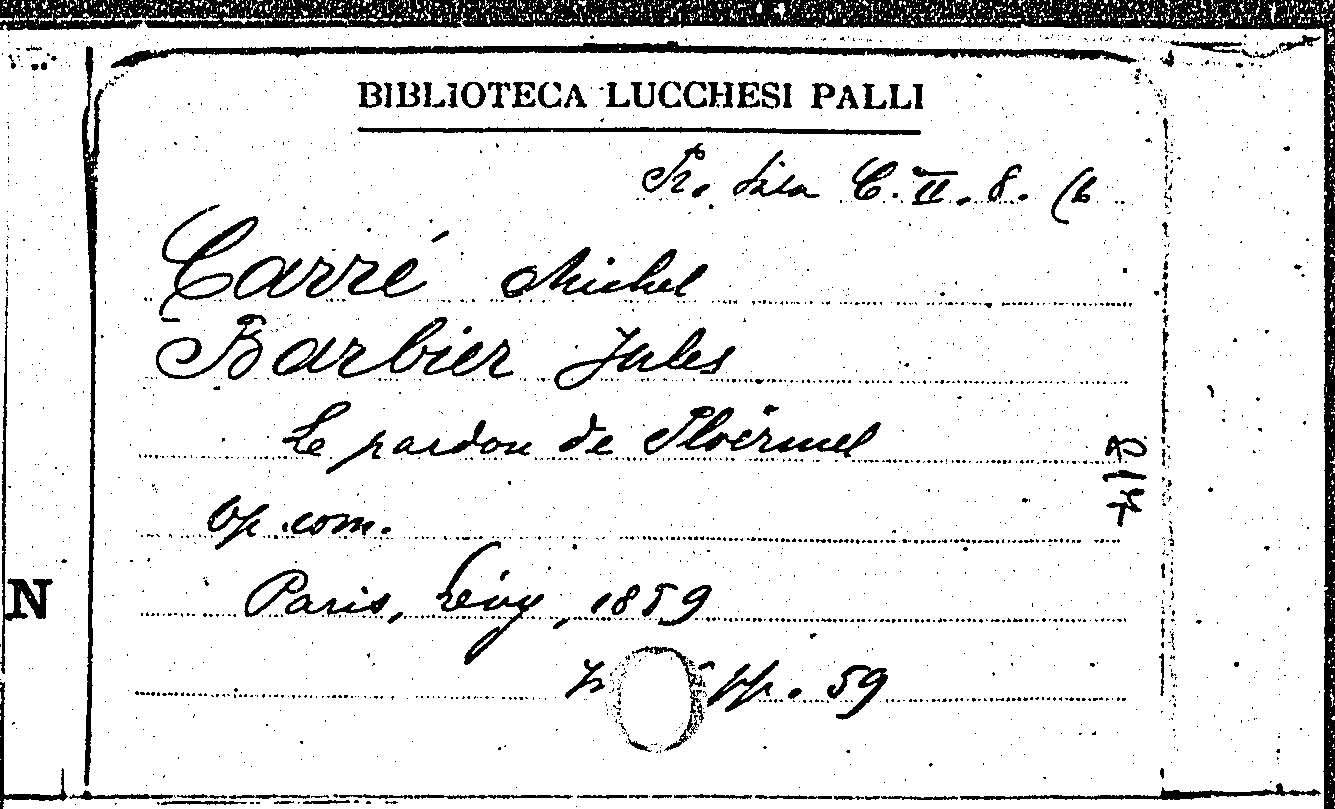 BIBLIOTECA LUCCHESI PALLI
Pr. Sala C. II. 8. (6
Carré Michel
Barbier Jules
Le pardon de Ploërmel
Op. com.
Paris, Lévy, 1859
pp. 59
N